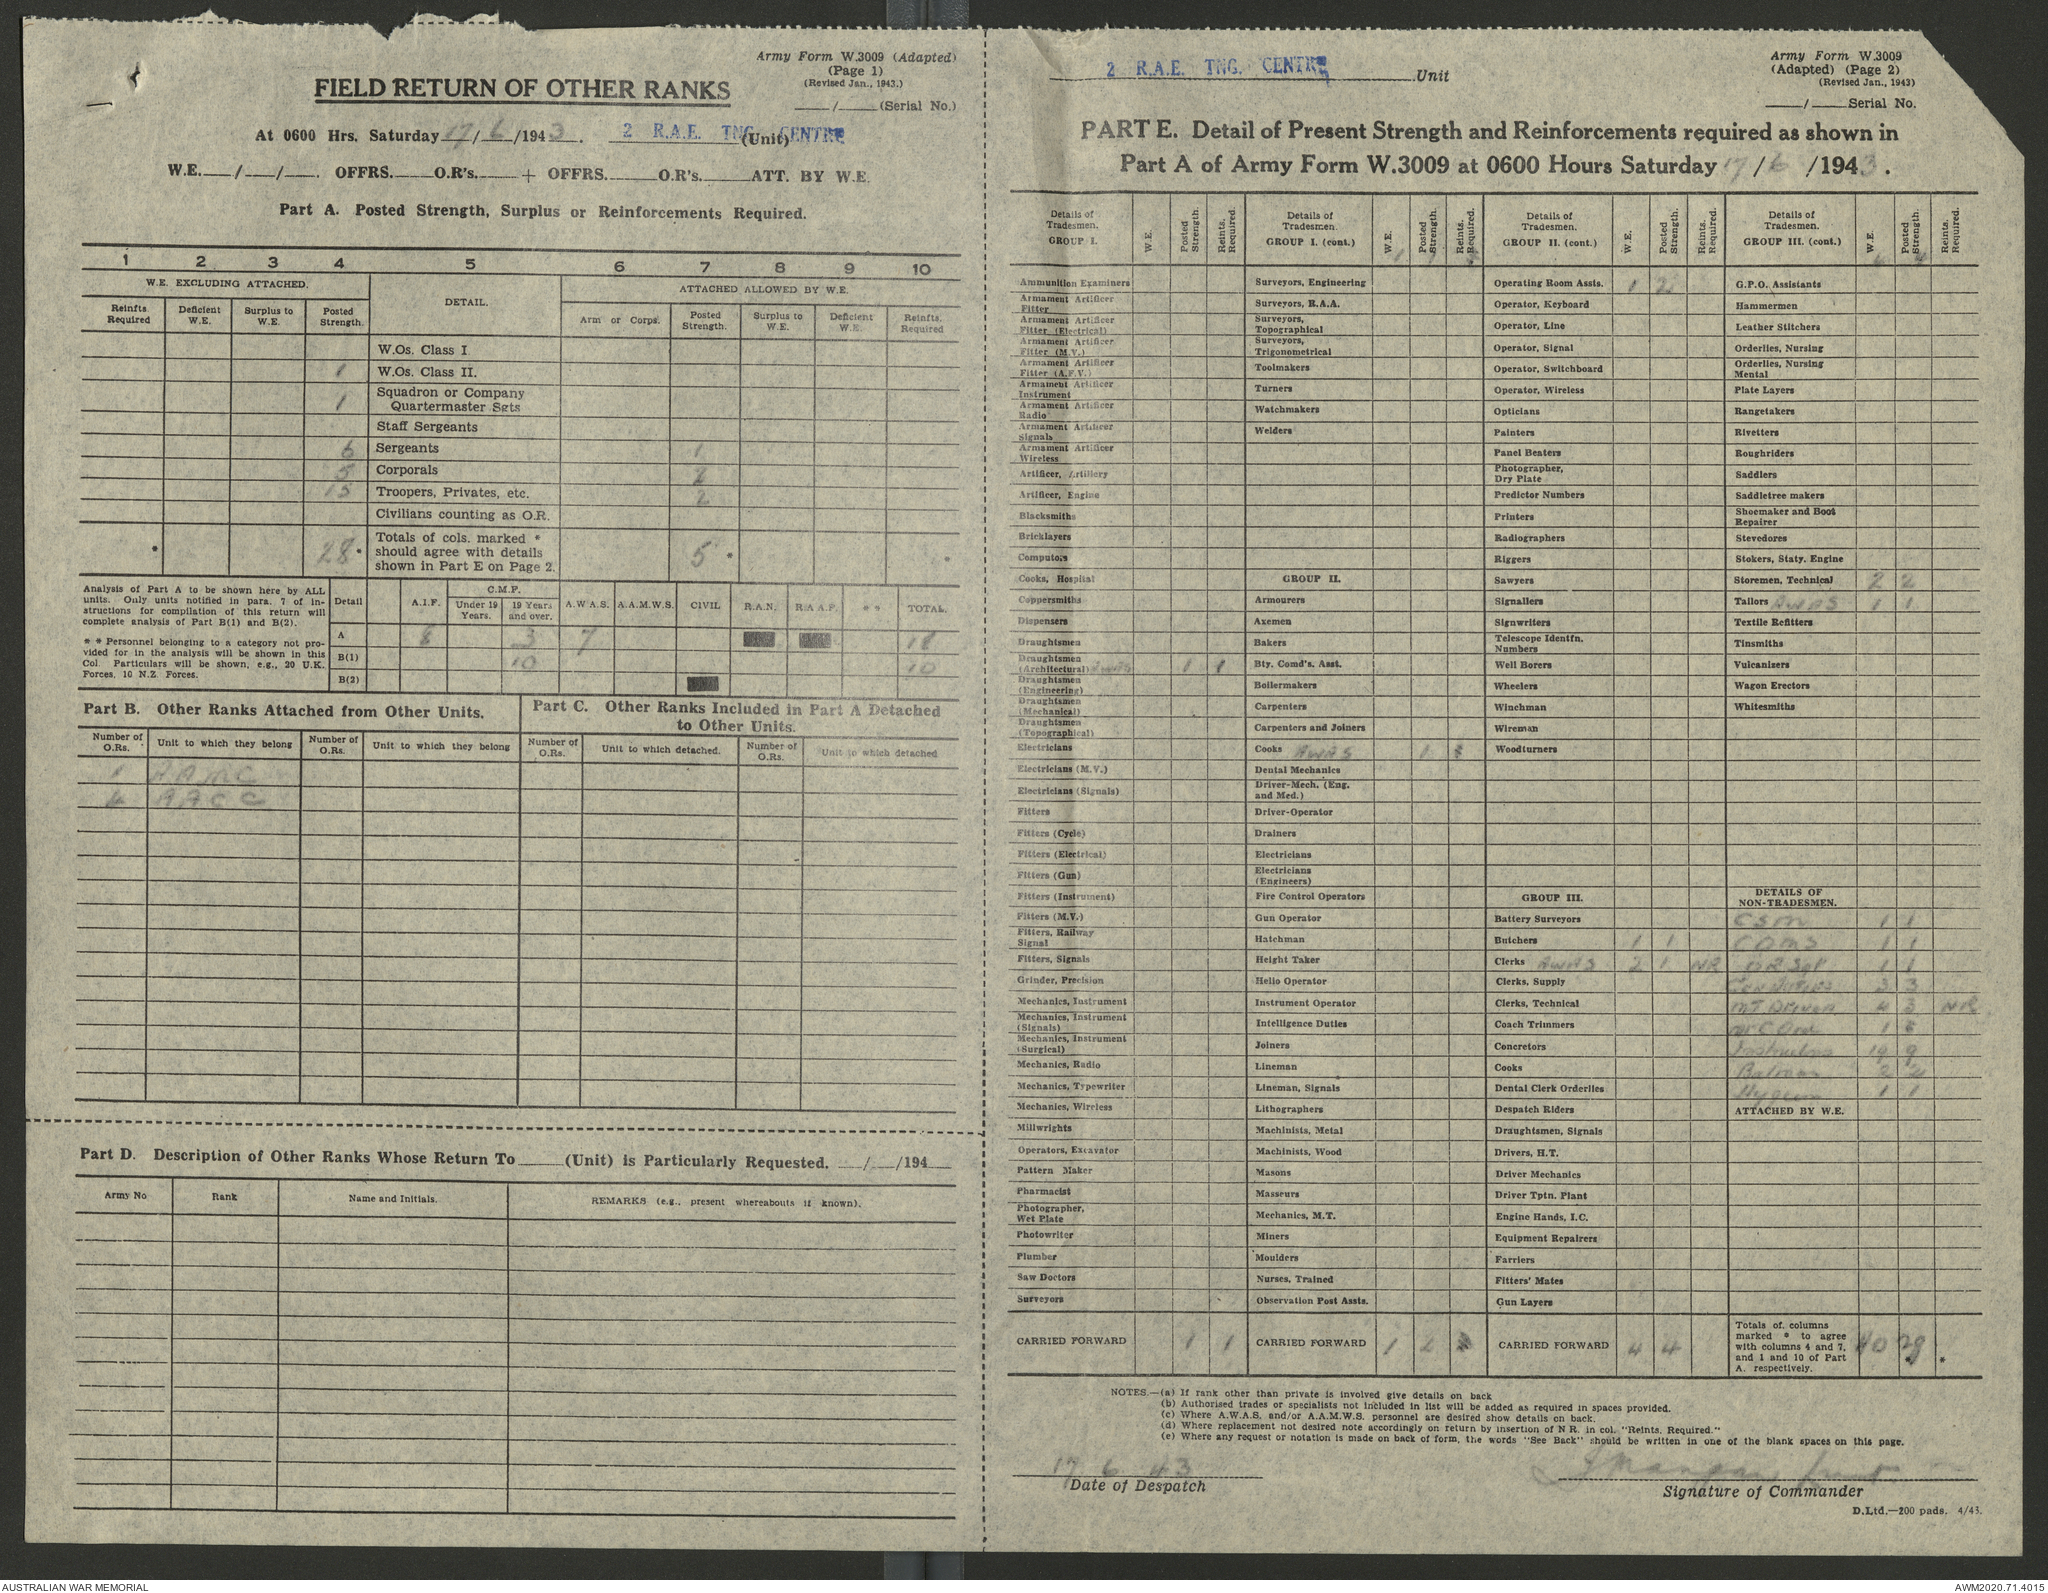 Army Form W.3009 (Adapted)
(Page 1)
(Revised Jan., 1943.)
FIELD RETURN OF OTHER RANKS
/ (Serial No.)
At 0600 Hrs. Saturday 17/6/1943. 2 R.A.E. TNG. CENTRE (Unit)
W.E. / / . OFFRS. O.R's. + OFFRS. O.R's. ATT. BY W.E.
Part A. Posted Strength, Surplus or Reinforcements Required.
1 2 3 4 5 6 7 8 9 10
W.E. EXCLUDING ATTACHED. DETAIL. ATTACHED ALLOWED BY W.E.
Reinfts. Required Deficient W.E. Surplus to W.E. Posted Strength. Arm or Corps. Posted Strength. Surplus to W.E. Deficient W.E. Reinfts. Required
W.Os. Class I
1 W.Os. Class II.
1 Squadron or Company Quartermaster Sgts
Staff Sergeants
6 Sergeants 1
5 Corporals 2
15 Troopers, Privates, etc. 2
Civilians counting as O.R.
* 28 * Totals of cols. marked * should agree with details shown in Part E on Page 2. 5 * *
Analysis of Part A to be shown here by ALL units. Only units notified in para. 7 of instructions for compilation of this return will complete analysis of Part B(1) and B(2).
* * Personnel belonging to a category not provided for in the analysis will be shown in this Col. Particulars will be shown, e.g., 20 U.K. Forces, 10 N.Z. Forces.
Detail A.I.F. C.M.F. Under 19 Years. 19 Years and over. A.W.A.S. A.A.M.W.S. CIVIL R.A.N. R.A.A.F. * * TOTAL.
A 8 3 7 18
B(1) 10 10
B(2)
Part B. Other Ranks Attached from Other Units.
Number of O.Rs. Unit to which they belong Number of O.Rs. Unit to which they belong
1 AAMC
4 AACC
Part C. Other Ranks Included in Part A Detached to Other Units.
Number of O.Rs. Unit to which detached. Number of O.Rs. Unit to which detached
Part D. Description of Other Ranks Whose Return To (Unit) is Particularly Requested. / /194
Army No Rank Name and Initials. REMARKS (e.g., present whereabouts if known).
2 R.A.E. TNG. CENTRE Unit
Army Form W.3009
(Adapted) (Page 2)
(Revised Jan., 1943)
/ Serial No.
PART E. Detail of Present Strength and Reinforcements required as shown in
Part A of Army Form W.3009 at 0600 Hours Saturday 17/6/1943.
Details of Tradesmen. GROUP I. W.E. Posted Strength. Reints. Required.
Ammunition Examiners
Armament Artificer Fitter
Armament Artificer Fitter (Electrical)
Armament Artificer Fitter (M.V.)
Armament Artificer Fitter (A.F.V.)
Armament Artificer Instrument
Armament Artificer Radio
Armament Artificer Signals
Armament Artificer Wireless
Artificer, Artillery
Artificer, Engine
Blacksmiths
Bricklayers
Computors
Cooks, Hospital
Coppersmiths
Dispensers
Draughtsmen
Draughtsmen (Architectural) AWAS 1 1
Draughtsmen (Engineering)
Draughtsmen (Mechanical)
Draughtsmen (Topographical)
Electricians
Electricians (M.V.)
Electricians (Signals)
Fitters
Fitters (Cycle)
Fitters (Electrical)
Fitters (Gun)
Fitters (Instrument)
Fitters (M.V.)
Fitters, Railway Signal
Fitters, Signals
Grinder, Precision
Mechanics, Instrument
Mechanics, Instrument (Signals)
Mechanics, Instrument (Surgical)
Mechanics, Radio
Mechanics, Typewriter
Mechanics, Wireless
Millwrights
Operators, Excavator
Pattern Maker
Pharmacist
Photographer, Wet Plate
Photowriter
Plumber
Saw Doctors
Surveyors
CARRIED FORWARD 1 1
Details of Tradesmen. GROUP I. (cont.) W.E. Posted Strength. Reints. Required.
Surveyors, Engineering
Surveyors, R.A.A.
Surveyors, Topographical
Surveyors, Trigonometrical
Toolmakers
Turners
Watchmakers
Welders
GROUP II.
Armourers
Axemen
Bakers
Bty. Comd's. Asst.
Boilermakers
Carpenters
Carpenters and Joiners
Cooks AWAS 1
Dental Mechanics
Driver-Mech. (Eng. and Med.)
Driver-Operator
Drainers
Electricians
Electricians (Engineers)
Fire Control Operators
Gun Operator
Hatchman
Height Taker
Hello Operator
Instrument Operator
Intelligence Duties
Joiners
Lineman
Lineman, Signals
Lithographers
Machinists, Metal
Machinists, Wood
Masons
Masseurs
Mechanics, M.T.
Miners
Moulders
Nurses, Trained
Observation Post Assts.
CARRIED FORWARD 1 2
Details of Tradesmen. GROUP II. (cont.) W.E. Posted Strength. Reints. Required.
Operating Room Assts. 1 2
Operator, Keyboard
Operator, Line
Operator, Signal
Operator, Switchboard
Operator, Wireless
Opticians
Painters
Panel Beaters
Photographer, Dry Plate
Predictor Numbers
Printers
Radiographers
Riggers
Sawyers
Signallers
Signwriters
Telescope Identfn. Numbers
Well Borers
Wheelers
Winchman
Wireman
Woodturners
GROUP III.
Battery Surveyors
Butchers 1 1
Clerks AWAS 2 1 NR
Clerks, Supply
Clerks, Technical
Coach Trimmers
Concretors
Cooks
Dental Clerk Orderlies
Despatch Riders
Draughtsmen, Signals
Drivers, H.T.
Driver Mechanics
Driver Tptn. Plant
Engine Hands, I.C.
Equipment Repairers
Farriers
Fitters' Mates
Gun Layers
CARRIED FORWARD 4 4
Details of Tradesmen. GROUP III. (cont.) W.E. Posted Strength. Reints. Required.
G.P.O. Assistants
Hammermen
Leather Stitchers
Orderlies, Nursing
Orderlies, Nursing Mental
Plate Layers
Rangetakers
Rivetters
Roughriders
Saddlers
Saddletree makers
Shoemaker and Boot Repairer
Stevedores
Stokers, Staty. Engine
Storemen, Technical 2 2
Tailors AWAS 1 1
Textile Refitters
Tinsmiths
Vulcanizers
Wagon Erectors
Whitesmiths
DETAILS OF NON-TRADESMEN.
CSM 1 1
CQMS 1 1
Sgt 1 1
Gen Duties 3 3
MT Driver 4 3 NR
1
Instructors 19 9
Batman 2 2
Hygiene 1 1
ATTACHED BY W.E.
Totals of columns marked * to agree with columns 4 and 7, and 1 and 10 of Part A. respectively. 40 28 *
NOTES.—(a) If rank other than private is involved give details on back
(b) Authorised trades or specialists not included in list will be added as required in spaces provided.
(c) Where A.W.A.S. and/or A.A.M.W.S. personnel are desired show details on back.
(d) Where replacement not desired note accordingly on return by insertion of N R. in col. "Reints. Required."
(e) Where any request or notation is made on back of form, the words "See Back" should be written in one of the blank spaces on this page.
17 6 43
Date of Despatch
Signature of Commander
D.Ltd.—200 pads. 4/43.
AUSTRALIAN WAR MEMORIAL
AWM2020.71.4015